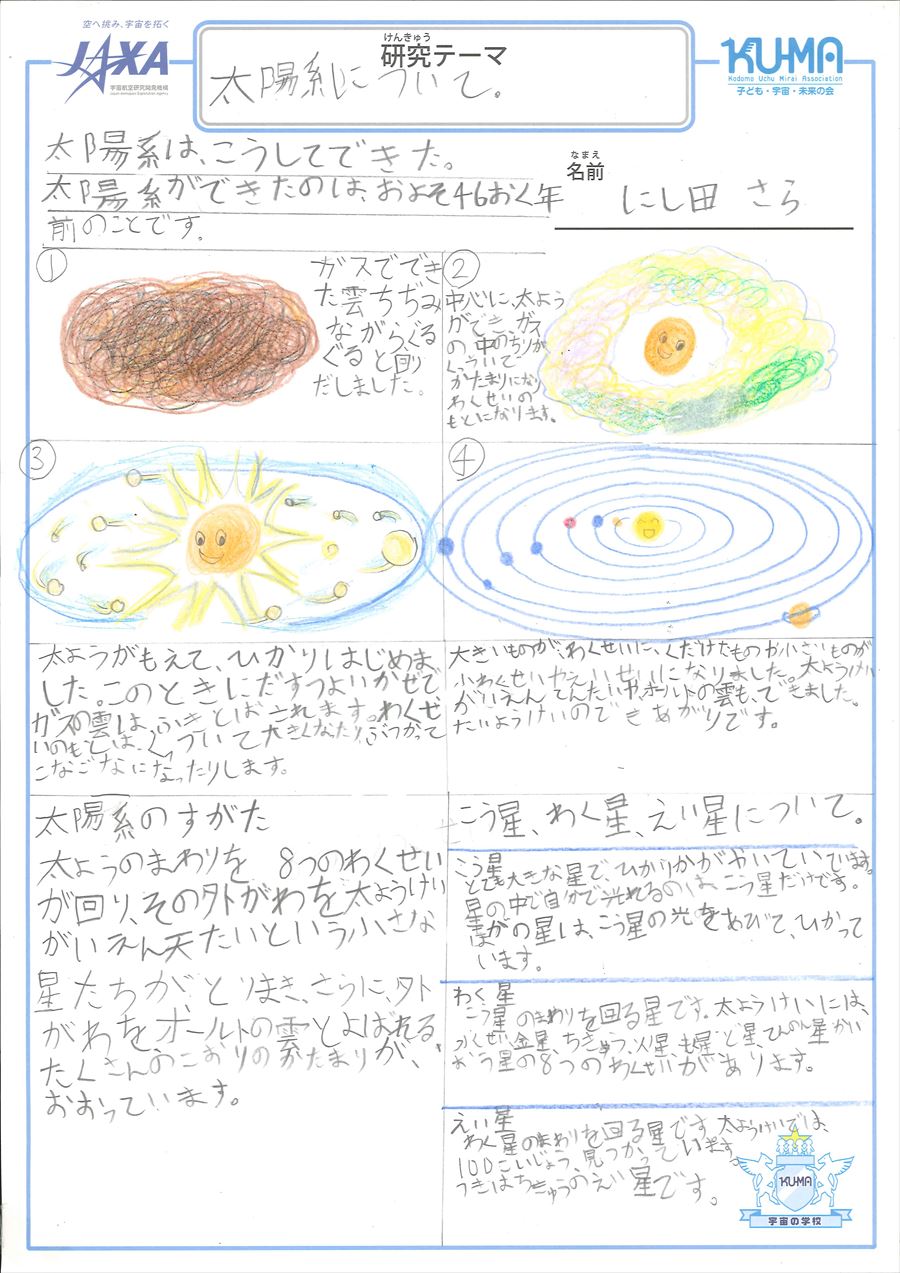 空へ挑み、宇宙を拓く
JAXA
宇宙航空研究開発機構
Japan Aerospace Exploration Agency
けんきゅう
研究テーマ
太陽系について。
KU-MA
Kodomo Uchu Mirai Association
子ども・宇宙・未来の会
太陽系は、こうしてできた。
太陽系ができたのは、およそ46おく年
前のことです。
なまえ
名前
にし田 さら
①
ガスででき
た雲ちぢみ
ながらぐる
ぐると回り
だしました。
②
中心に、太よう
ができ、ガス
の中のちりが
くっついて
かたまりになり
わくせいの
もとになります。
③
太ようがもえて、ひかりはじめま
した。このときにだすつよいかぜで
ガスの雲は、ふきとばされます。わくせ
いのもとは、くっついて大きくなたり、ぶつかって
こなごなになったりします。
④
大きいものが、わくせいに、くだけたものか小さいものが
小わくせいやえいせいになりました。太ようけい
がいえんてんたいや、オールトの雲も、できました。
たいようけいのできあがりです。
太陽系のすがた
太ようのまわりを 8つのわくせい
が回り、その外がわを太ようけい
がいえん天たいという小さな
星たちが、とりまき、さらに、外
がわを、オールトの雲とよばれる、
たくさんのこおりのかたまりが、
おおっています。
こう星、わく星、えい星について。
こう星
とても大きな星で、ひかりかがやいていています。
星の中で自分で光れるのは、こう星だけです。
ほかの星は、こう星の光をあびて、ひかって
います。
わく星
こう星のまわりを回る星です。太ようけいには、
金星、ちきゅう、火星、も星、ど星、てんのう星、かい
おう星の8つのわくせいがあります。
えい星
わく星のまわりを回る星です。太ようけいでは、
100こいじょう、見つかっています。
つきはちきゅうのえい星です。
KU-MA
宇宙の学校